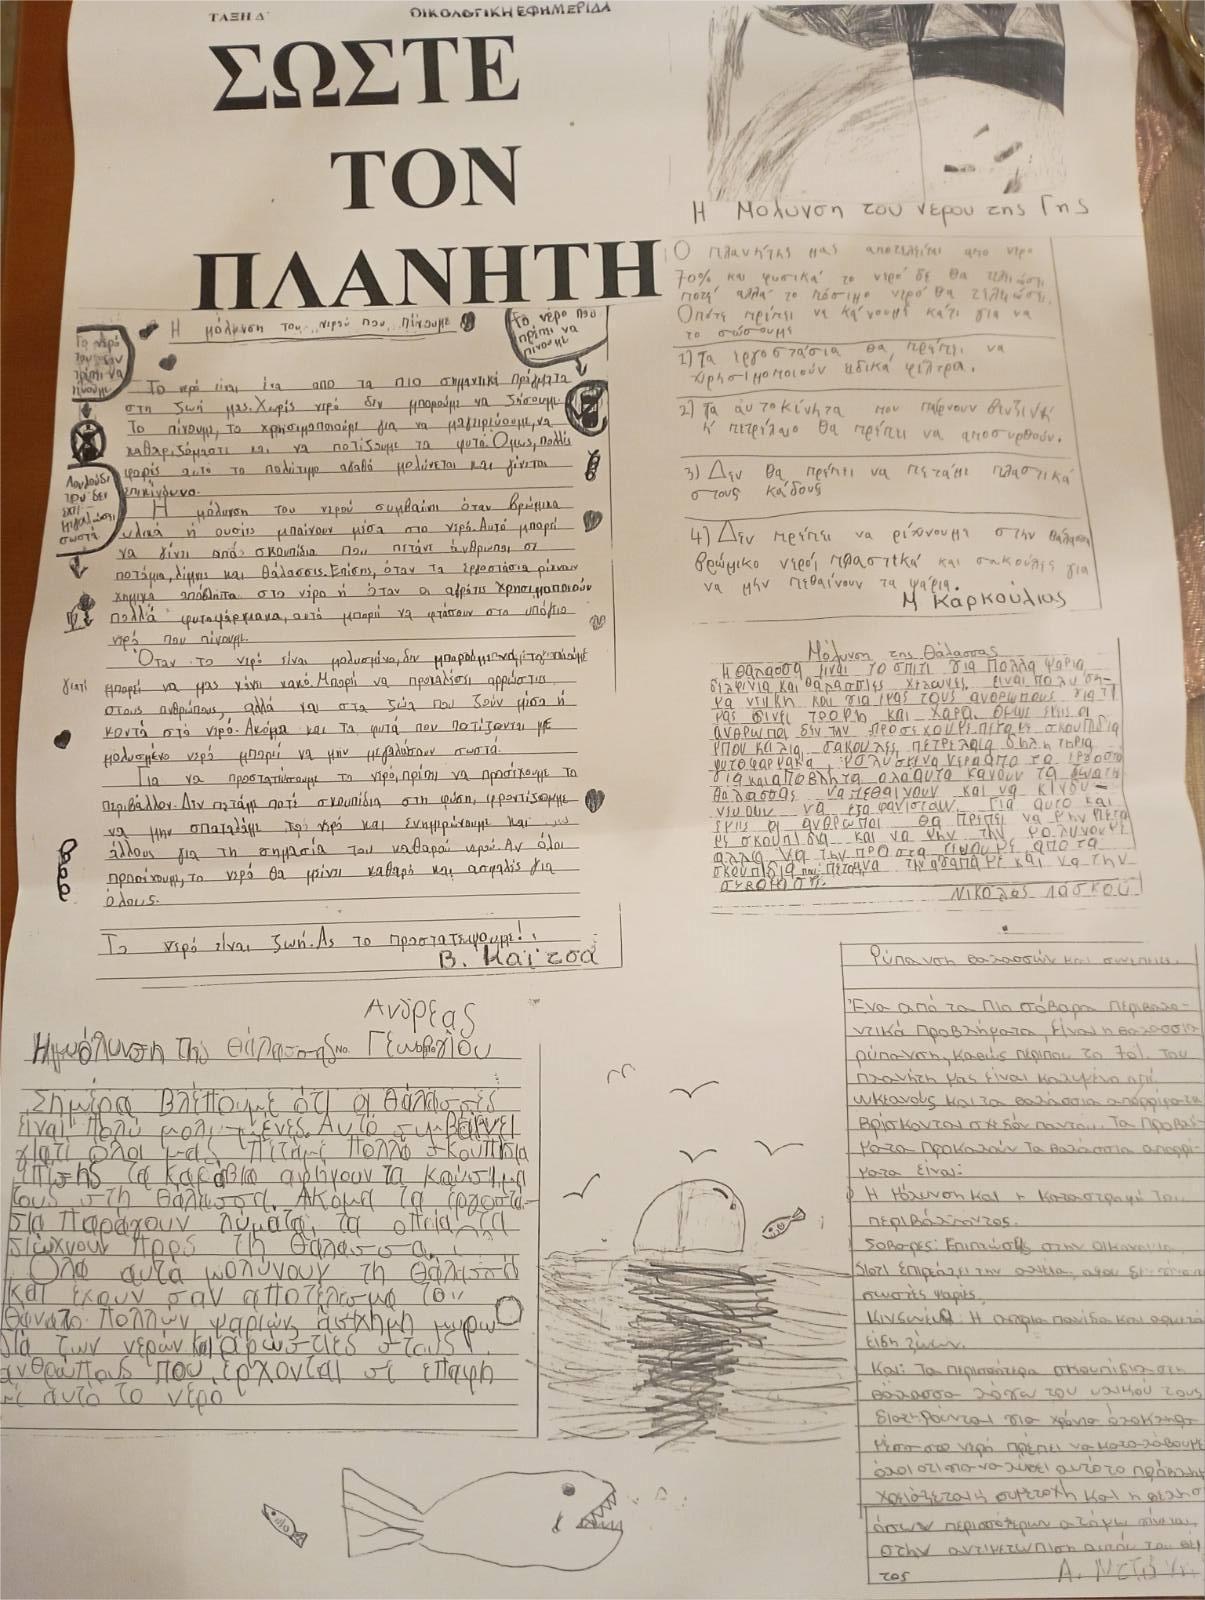 ΤΑΞΗ Δ΄
ΟΙΚΟΛΟΓΙΚΗ ΕΦΗΜΕΡΙΔΑ
ΣΩΣΤΕ
ΤΟΝ
ΠΛΑΝΗΤΗ
Η μόλυνση του νερού που πίνουμε
Το νερό που
πρέπει να
πίνουμε
Το νερό
που δεν
πρέπει να
πίνουμε
Λουλούδι
που δεν
έχει
μεγαλώσει
σωστά
Το νερό είναι ένα από τα πιο σημαντικά πράγματα
στη ζωή μας. Χωρίς νερό δεν μπορούμε να ζήσουμε.
Το πίνουμε, το χρησιμοποιούμε για να μαγειρεύουμε, να
καθαριζόμαστε και να ποτίζουμε τα φυτά. Όμως, πολλές
φορές αυτό το πολύτιμο αγαθό μολύνεται και γίνεται
επικίνδυνο.
Η μόλυνση του νερού συμβαίνει όταν βρώμικα
υλικά ή ουσίες μπαίνουν μέσα στο νερό. Αυτό μπορεί
να γίνει από σκουπίδια που πετάνε άνθρωποι σε
ποτάμια, λίμνες και θάλασσες. Επίσης, όταν τα εργοστάσια ρίχνουν
χημικά απόβλητα στο νερό ή όταν οι αγρότες χρησιμοποιούν
πολλά φυτοφάρμακα, αυτά μπορεί να φτάσουν στο υπόγειο
νερό που πίνουμε.
Όταν το νερό είναι μολυσμένο, δεν μπορούμε να το πιούμε
γιατί μπορεί να μας κάνει κακό. Μπορεί να προκαλέσει αρρώστιες
στους ανθρώπους, αλλά και στα ζώα που ζουν μέσα ή
κοντά στο νερό. Ακόμα και τα φυτά που ποτίζονται με
μολυσμένο νερό μπορεί να μην μεγαλώσουν σωστά.
Για να προστατεύσουμε το νερό, πρέπει να προσέχουμε το
περιβάλλον. Δεν πετάμε ποτέ σκουπίδια στη φύση, φροντίζουμε
να μην σπαταλάμε το νερό και ενημερώνουμε και
άλλους για τη σημασία του καθαρού νερού. Αν όλοι
προσέχουμε, το νερό θα μείνει καθαρό και ασφαλές για
όλους.
Το νερό είναι ζωή. Ας το προστατέψουμε!
Β. Καϊτσά
Η Μόλυνση του νερου της Γης
Ο πλανήτης μας αποτελείται απο νερο
70% και φυσικά το νερό δε θα τελειώσει
ποτέ αλλά το πόσιμο νερό θα τελειώσει.
Οπότε πρέπει να κάνουμε κάτι για να
το σώσουμε
1) Τα εργοστάσια θα πρέπει να
χρησιμοποιούν ειδικά φίλτρα.
2) Τα αυτοκίνητα που παίρνουν βενζίνη
ή πετρέλαιο θα πρέπει να αποσυρθούν.
3) Δεν θα πρέπει να πετάμε πλαστικά
στους κάδους
4) Δεν πρέπει να ρίχνουμε στην θάλασσα
βρώμικο νερό, πλαστικά και σακούλες για
να μην πεθαίνουν τα ψάρια.
Μ Καρκούλιας
Μόλυνση της Θάλασσας
Η θάλασσα είναι το σπίτι για πολλά ψάρια
δελφίνια και θαλάσσιες χελώνες, είναι πολύ ση-
μαντική και για εμάς τους ανθρώπους γιατί
μας δίνει τροφή και χαρά. Όμως εμείς οι
άνθρωποι δεν την προσέχουμε πετάμε σκουπίδια
μπουκάλια, σακούλες, πετρέλαια δηλητήρια
φυτοφάρμακα, μολυσμένα νερά από τα εργοστά
σια και απόβλητα όλα αυτά κάνουν τα
θάλασσας να πεθαίνουν και να κινδυ-
νεύουν να εξαφανιστούν. Για αυτό και
εμείς οι άνθρωποι θα πρέπει να μην πετά
με σκουπίδια και να μην την μολύνουμε
αλλά να την προστατεύουμε από τα
σκουπίδια που πετάμε να την αγαπάμε και να την
σεβόμαστε.
Νικόλας Λάσκου
Ανδρέας
Γεωργίου
Η μόλυνση της θάλασσας
Σήμερα βλέπουμε ότι οι θάλασσες
είναι πολύ μολυσμένες. Αυτό συμβαίνει
γιατί όλοι μας πετάμε πολλά σκουπίδια
επίσης τα καράβια αφήνουν τα καύσιμα
τους στη θάλασσα. Ακόμα τα εργοστά-
σια παράγουν λύματα, τα οποία τα
διώχνουν προς τη θάλασσα.
Όλα αυτά μολύνουν τη θάλασσα
και έχουν σαν αποτέλεσμα τον
θάνατο πολλών ψαριών, άσχημη μυρω
διά των νερών και αρρώστιες στους
ανθρώπους που έρχονται σε επαφή
με αυτό το νερό
Ρύπανση θαλασσών και συνέπειες.
Ένα από τα πιο σοβαρά περιβαλλο-
ντικά προβλήματα, είναι η θαλάσσια
ρύπανση, καθώς περίπου το 70% του
πλανήτη μας είναι καλυμένο από
ωκεανούς και τα θαλάσσια απορρίματα
βρίσκονται σχεδόν παντού. Τα προβλή-
ματα προκαλούν τα θαλάσσια απορρί-
ματα είναι:
Η Μόλυνση και η καταστροφή του
περιβάλλοντος.
Σοβαρές: Επιπτώσεις στην οικονομία
διότι επηρεάζει την αλιεία,
σωστές ψαριές.
Κίνδυνος: Η άγρια πανίδα και αρκετά
είδη ζώων.
Και: Τα περισσότερα σκουπίδια στη
θάλασσα λόγω του υλικού τους
διατηρούνται για χρόνια ολόκληρα
μέσα στο νερό πρέπει να καταλάβουμε
όλοι ότι για να λύσει αυτό το πρόβλημα
χρειάζεται η συμετοχή και η θέληση
όσων περισσότερων ατόμων γίνεται,
στην αντιμετώπιση αυτού του θέμ
τος